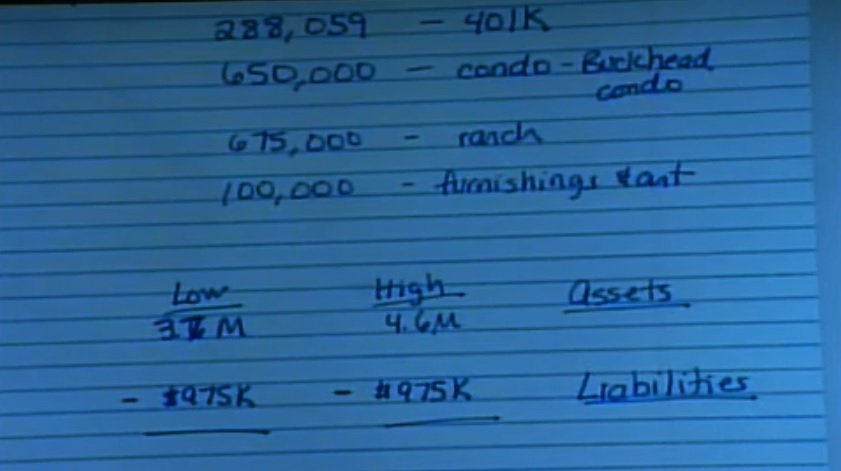 288,059 - 401K
650,000 - condo - Buckhead
condo
675,000 - ranch
100,000 - furnishings & art
Low High Assets
M 4.6M
- $975K - $975K Liabilities